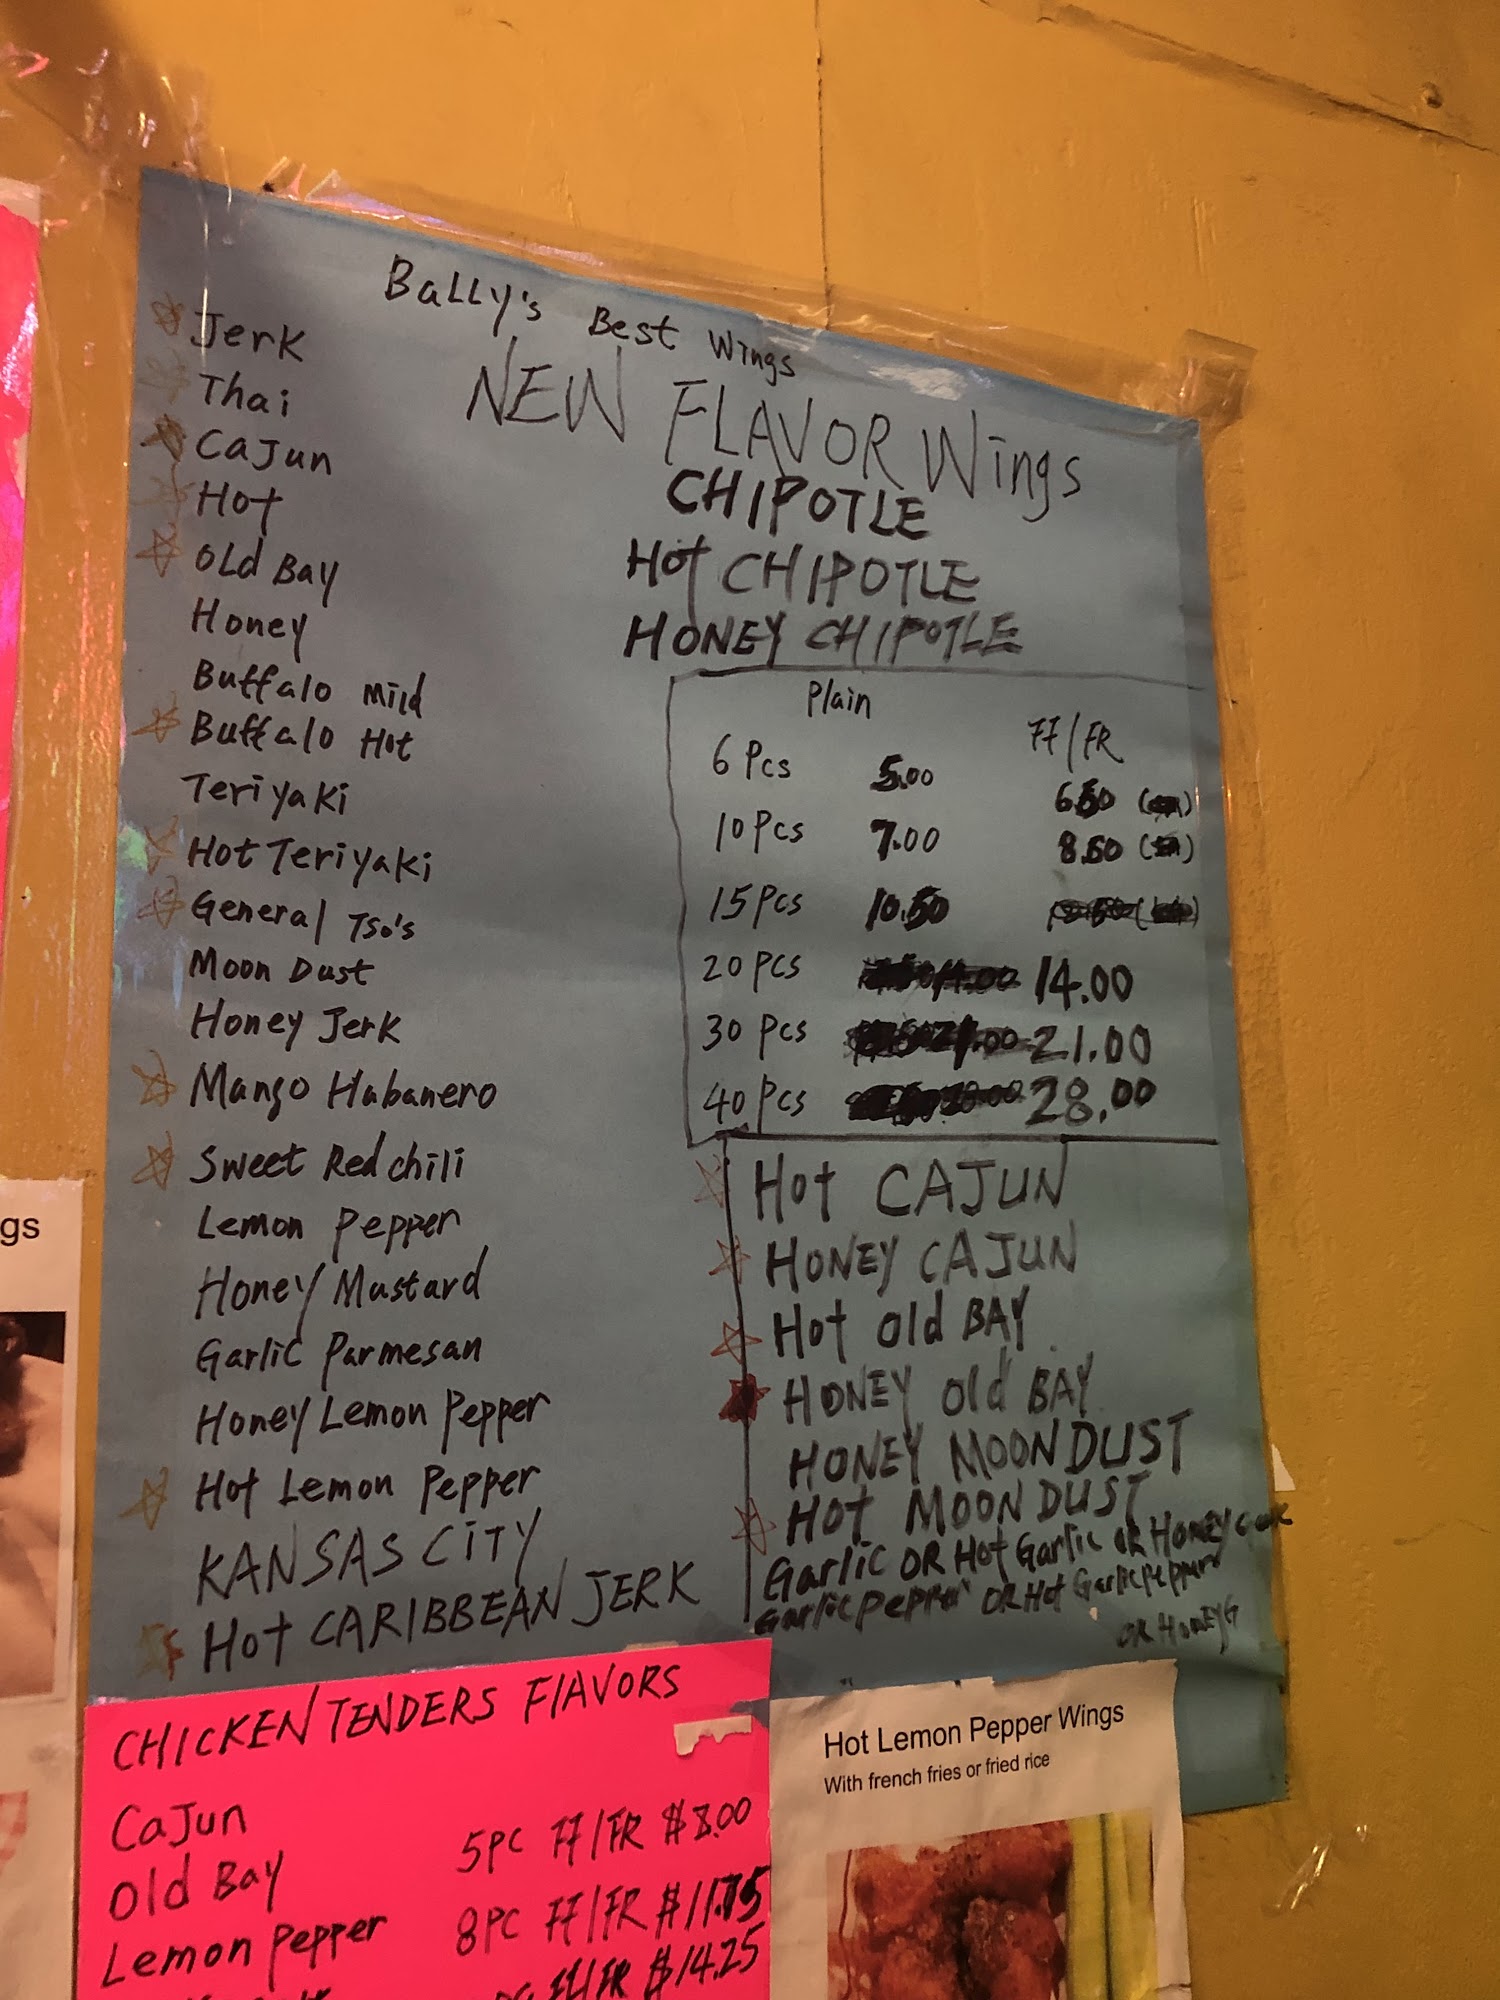 Bally's Best Wings
NEW FLAVOR Wings
CHIPOTLE
Hot CHIPOTLE
HONEY CHIPOTLE
Jerk
Thai
Cajun
Hot
Old Bay
Honey
Buffalo Mild
Buffalo Hot
Teriyaki
Hot Teriyaki
General Tso's
Moon Dust
Honey Jerk
Mango Habanero
Sweet Red chili
Lemon Pepper
Honey Mustard
Garlic Parmesan
Honey Lemon Pepper
Hot Lemon Pepper
KANSAS CITY
Hot CARIBBEAN JERK
Plain FF/FR
6 Pcs 5.00 6.50
10 Pcs 7.00 8.50
15 Pcs 10.50
20 Pcs 14.00
30 Pcs 21.00
40 Pcs 28.00
Hot CAJUN
HONEY CAJUN
Hot Old BAY
HONEY Old BAY
HONEY MOONDUST
Hot MOONDUST
Garlic OR Hot Garlic OR HONEY
Garlicpepper OR Hot Garlicpepper
OR HONEYG
CHICKEN TENDERS FLAVORS
Cajun
Old Bay
Lemon Pepper
5PC FF/FR $8.00
8PC FF/FR $11.75
FF/FR $14.25
Hot Lemon Pepper Wings
With french fries or fried rice
gs